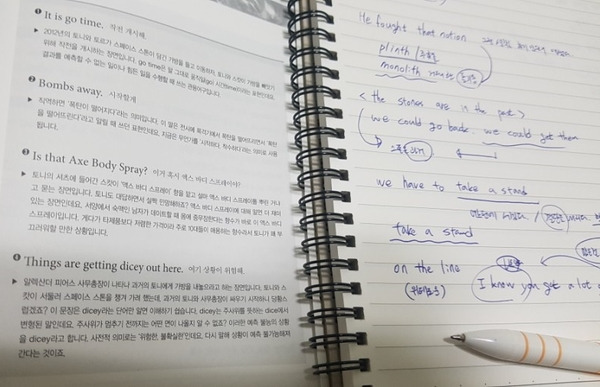 It is go time. 작전 개시해.
▶ 2012년의 토니와 토르가 스페이스 스톤이 담긴 가방을 들고 이동하자, 토니와 스캇이 가방을 빼앗기
위해 작전을 개시하는 장면입니다. go time은 말 그대로 움직일(go) 시간(time)이라는 표현인데요.
결과를 예측할 수 없는 일이나 힘든 일을 수행할 때 쓰는 관용어구입니다.
2 Bombs away. 시작할게
▶ 직역하면 '폭탄이 떨어지다'라는 의미입니다. 이 말은 전시에 폭격기에서 폭탄을 떨어뜨리면서 '폭탄
을 떨어뜨린다'라고 알릴 때 쓰던 표현인데요. 지금은 무언가를 '시작하다, 착수하다'라는 의미로 사용
됩니다.
3 Is that Axe Body Spray? 이거 혹시 엑스 바디 스프레이야?
▶ 토니의 셔츠에 들어간 스캇이 '엑스 바디 스프레이' 향을 맡고 설마 엑스 바디 스프레이를 뿌린 거냐
고 묻는 장면입니다. 토니도 대답하면서 살짝 민망해하죠?
스프레이입니다. 게다가 타제품보다 저렴한 가격이라 주로 10대들이 애용하는 향수라서 토니가 꽤 부
끄러워할 만한 상황입니다.
4 Things are getting dicey out here. 여기 상황이 위험해.
▶ 알렉산더 피어스 사무총장이 나타나 과거의 토니에게 가방을 내놓으라고 하는 장면입니다. 토니와 스
캇이 서둘러 스페이스 스톤을 챙겨 가려 했는데, 과거의 토니와 사무총장이 싸우기 시작하니 당황스
럽겠죠? 이 문장은 dicey라는 단어만 알면 이해하기 쉽습니다. dicey는 주사위를 뜻하는 dice에서
변형된 말인데요. 주사위가 멈추기 전까지는 어떤 면이 나올지 알 수 없죠? 이러한 예측 불능의 상황
을 dicey라고 합니다. 사전적 의미로는 '위험한, 불확실한'인데요. 다시 말해 상황이 예측 불가능해져
간다는 것이죠.
He fought that notion
plinth
monolith
< the stones are in the past >
we could go back we could get them
we have to take a stand
take a stand
on the line
I know you get a lot